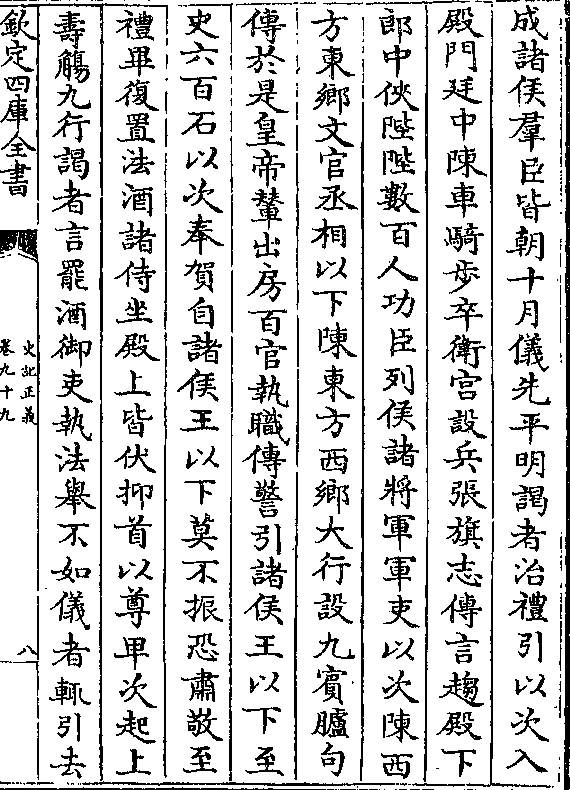 成諸侯羣臣皆朝十月儀先平明謁者治禮引以次入
殿門廷中陳車騎步卒衛宮設兵張旗志傳言趨殿下
郎中俠陛陛數百人功臣列侯諸將軍軍吏以次陳西
方東鄉文官丞相以下陳東方西鄉大行設九賓臚句
傳於是皇帝輦出房百官執職傳警引諸侯王以下至
吏六百石以次奉賀自諸侯王以下莫不振恐肅敬至
禮畢復置法酒諸侍坐殿上皆伏抑首以尊卑次起上
壽觴九行謁者言罷酒御史執法舉不如儀者輒引去
欽定四庫全書
史記正義
卷九十九
八